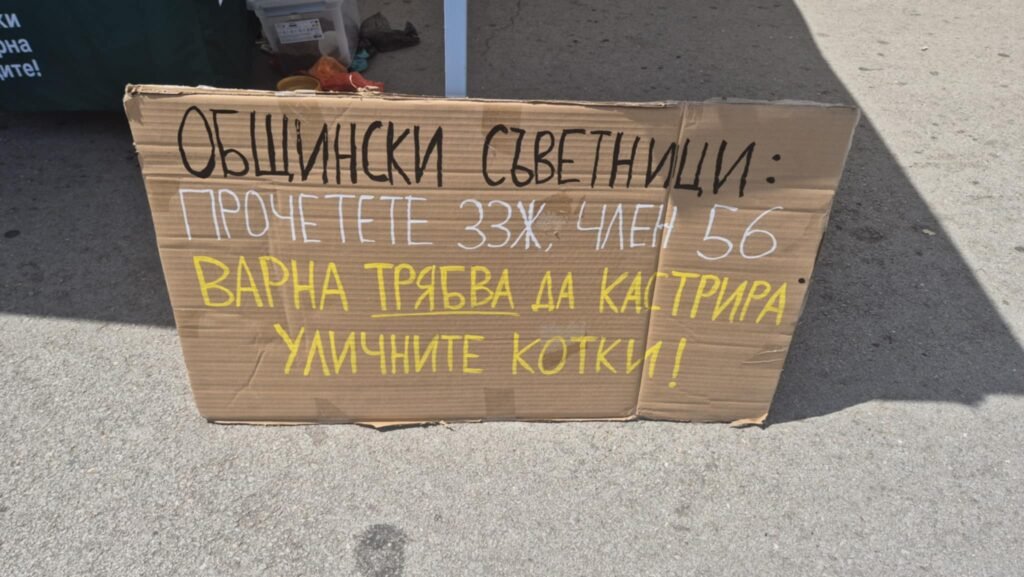 ОБЩИНСКИ СЪВЕТНИЦИ:
ПРОЧЕТЕТЕ ЗЗЖ, ЧЛЕН 56
ВАРНА ТРЯБВА ДА КАСТРИРА
УЛИЧНИТЕ КОТКИ!